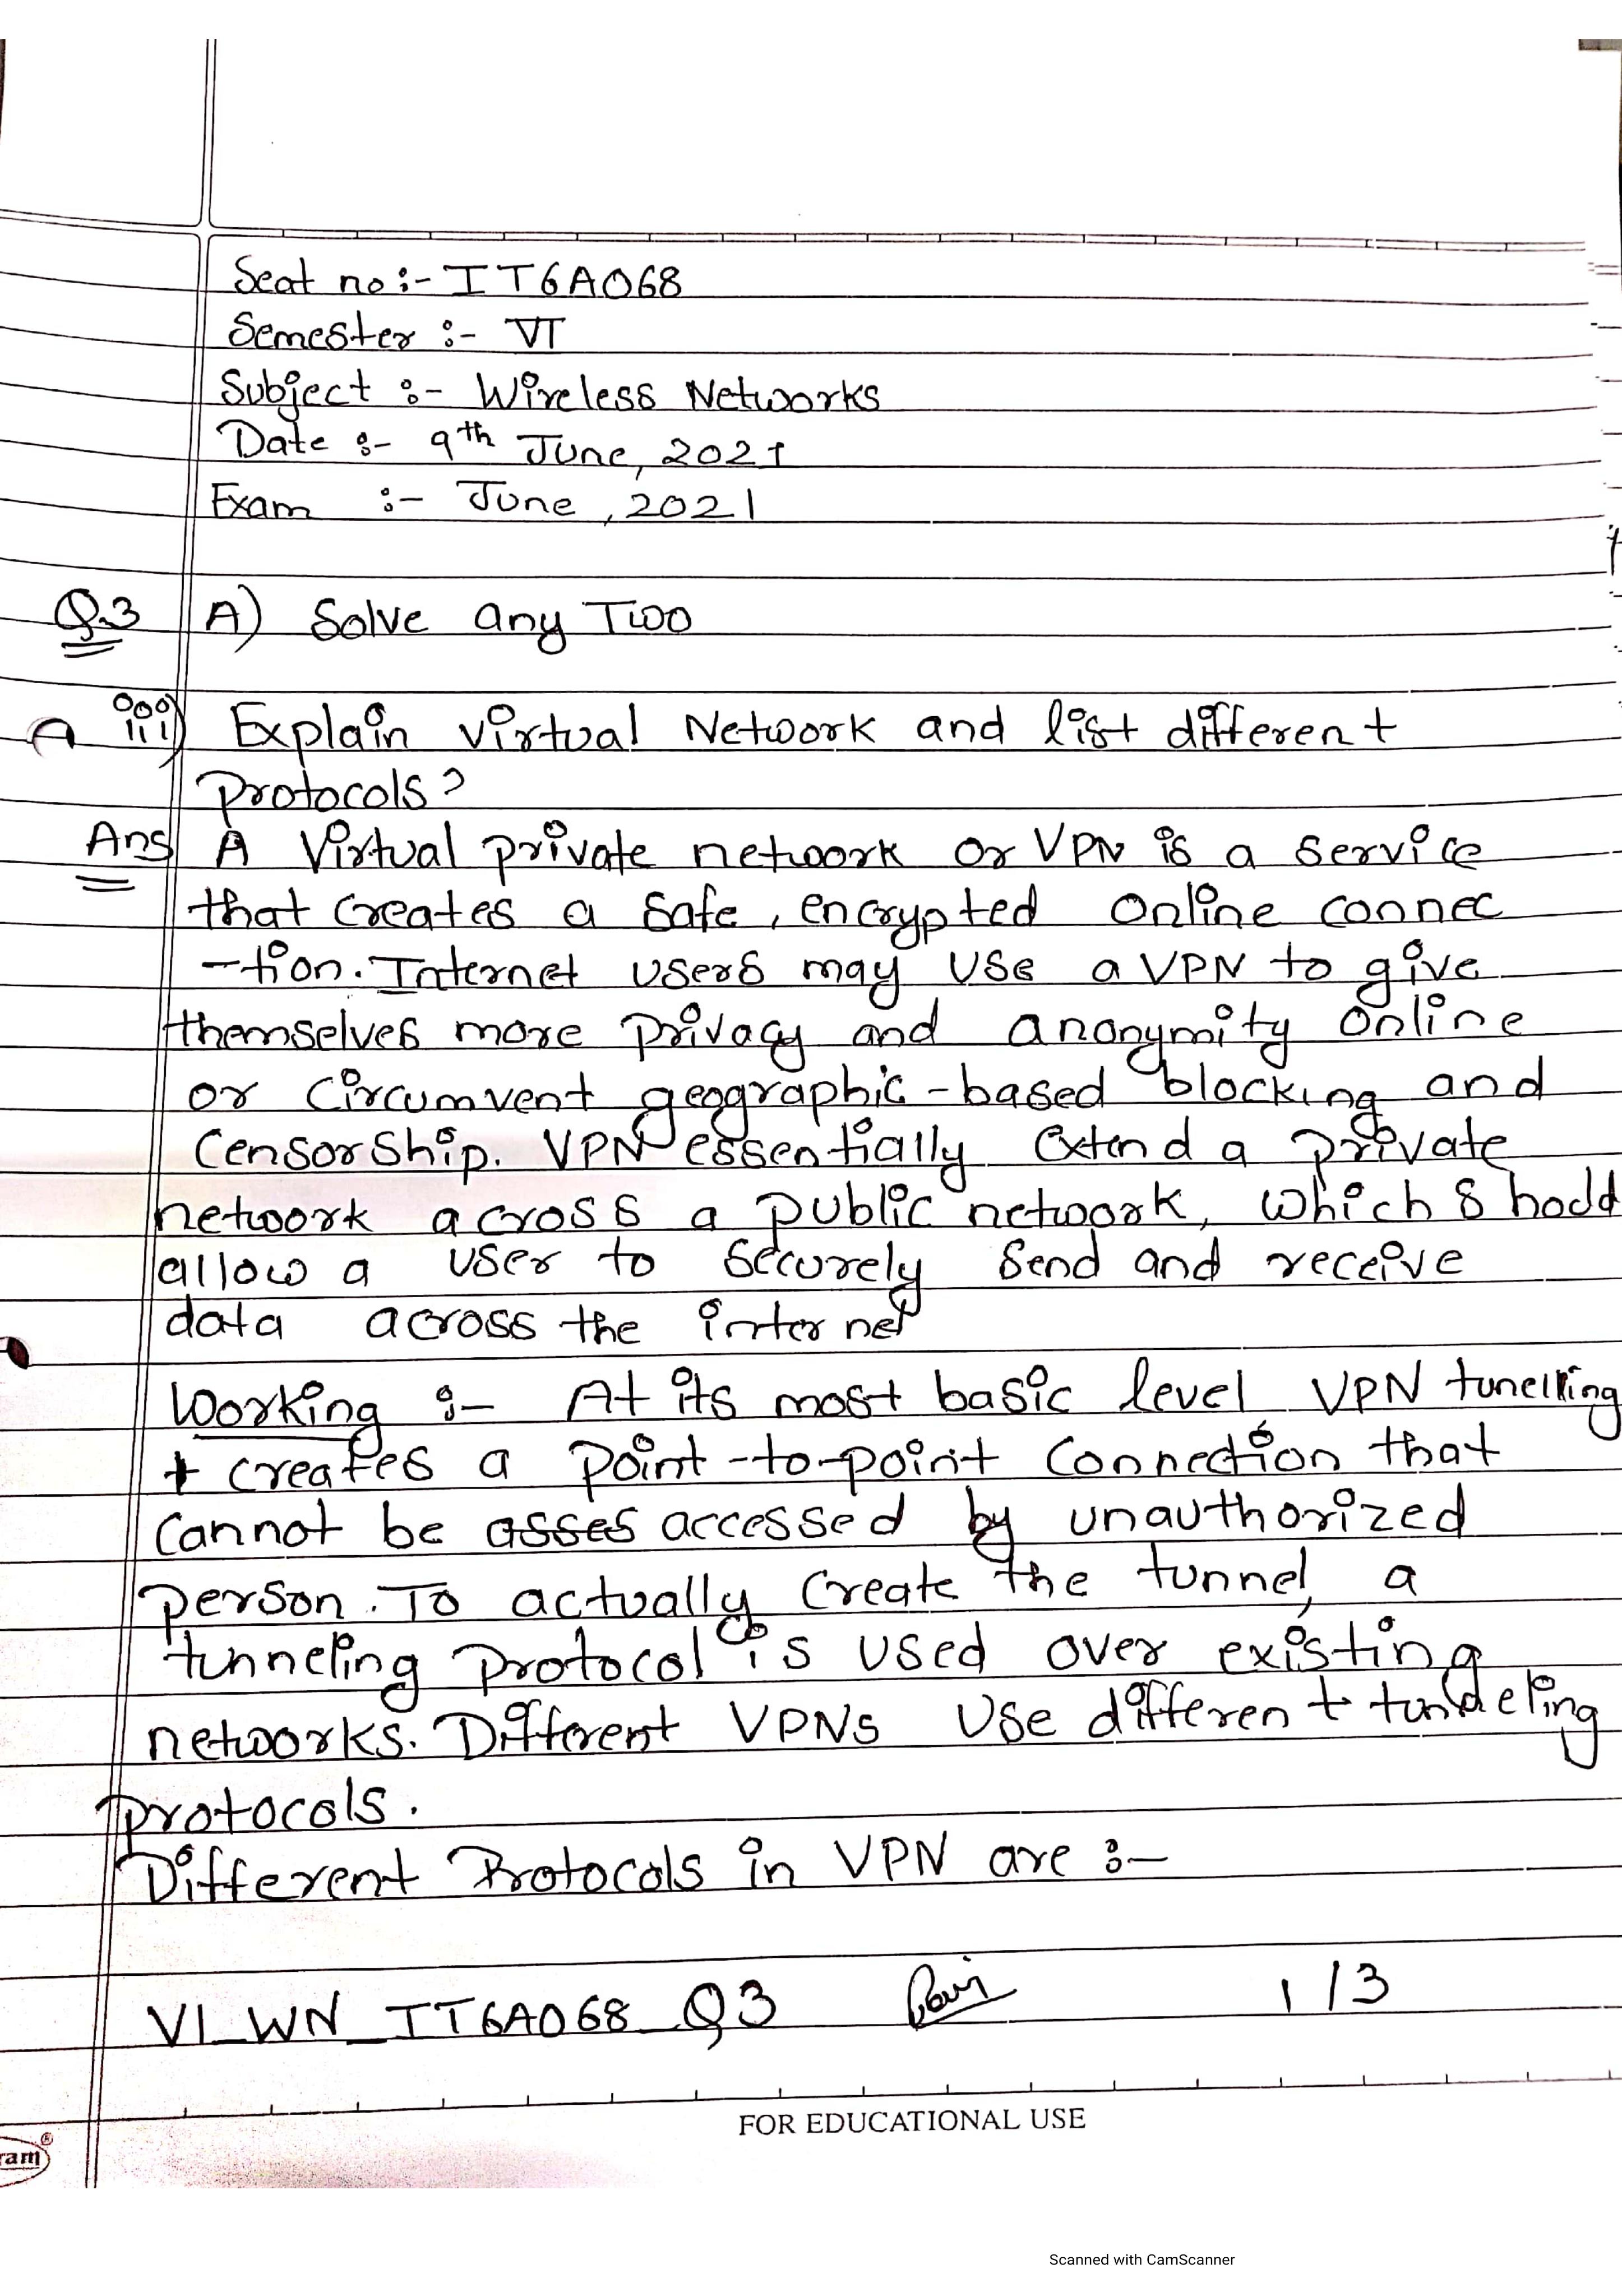 Seat no :- IT6A068
Semester :- VI
Subject :- Wireless Networks
Date :- 9th June, 2021
Exam :- June, 2021
Q.3 A) Solve any Two
A iii) Explain virtual Network and list different
Protocols?
Ans A Virtual private network or VPN is a service
that creates a safe, encrypted online connec
-tion. Internet users may use a VPN to give
themselves more privacy and anonymity online
or circumvent geographic-based blocking and
Censorship. VPN essentially extend a private
network across a public network, which
allow a user to securely send and receive
data across the internet
Working :- At its most basic level VPN tunelling
creates a point-to-point connection that
cannot be asses accessed by unauthorized
person. To actually create the tunnel, a
tunneling protocol is used over existing
networks. Different VPNs use different
protocols.
Different Protocols in VPN are :-
VI_WN_IT6A068_Q3 1/3
FOR EDUCATIONAL USE
ram®
Scanned with CamScanner